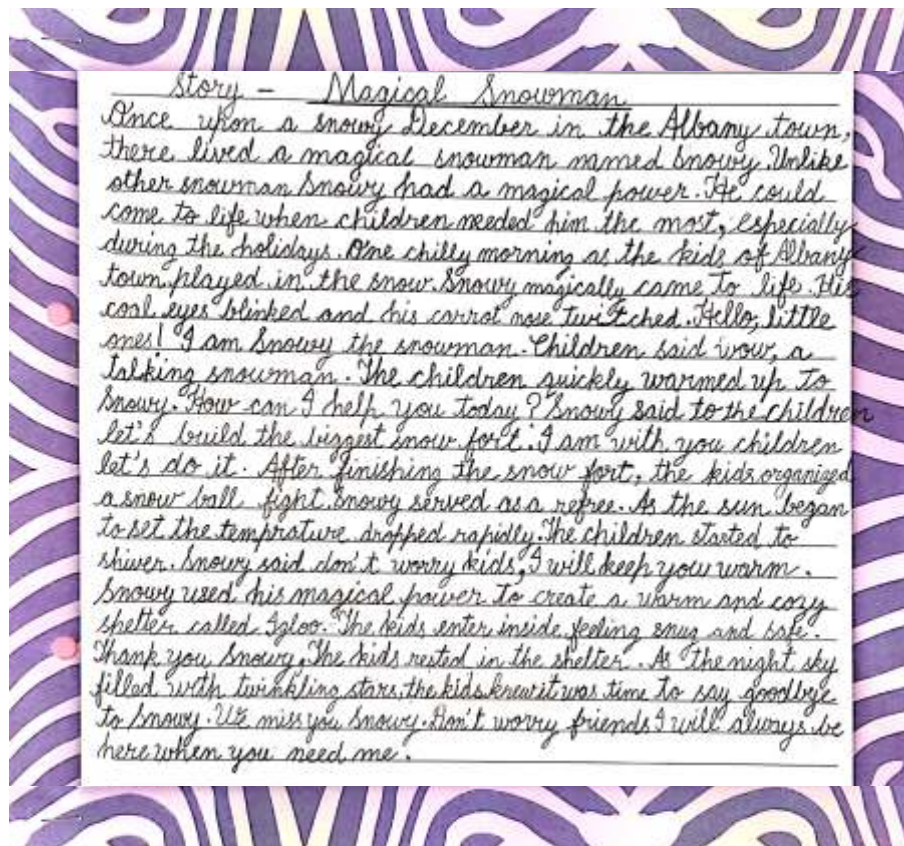 Story - Magical Snowman
Once upon a snowy December in the Albany town,
there lived a magical snowman named Snowy. Unlike
other snowman Snowy had a magical power. He could
come to life when children needed him the most, especially
during the holidays. One chilly morning as the kids of Albany
town played in the snow. Snowy magically came to life. His
coal eyes blinked and his carrot nose twitched. Hello, little
ones! I am Snowy the snowman. Children said wow, a
talking snowman. The children quickly warmed up to
Snowy. How can I help you today? Snowy said to the children
let's build the biggest snow fort. I am with you children
let's do it. After finishing the snow fort, the kids organized
a snow ball fight. Snowy served as a refree. As the sun began
to set the temprature dropped rapidly. The children started to
shiver. Snowy said don't worry kids, I will keep you warm.
Snowy used his magical power to create a warm and cozy
shelter called Igloo. The kids enter inside feeling snug and safe.
Thank you Snowy. The kids rested in the shelter. As the night sky
filled with twinkling stars, the kids knew it was time to say goodbye
to Snowy. We miss you Snowy. Don't worry friends I will always be
here when you need me.